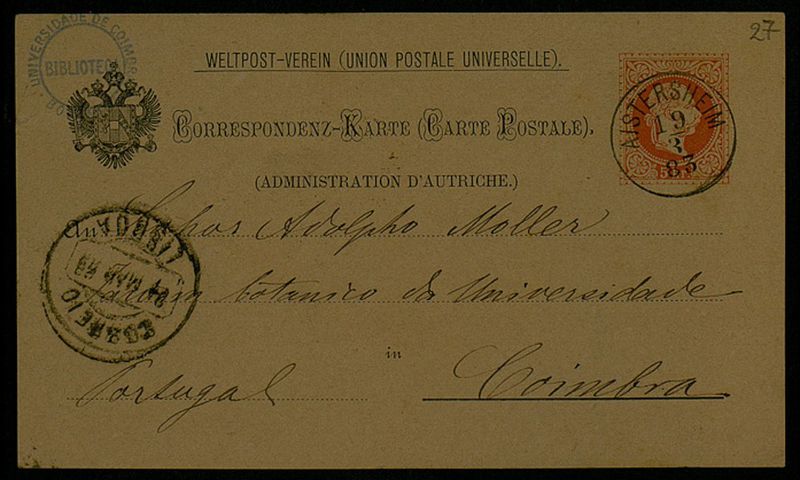 27
UNIVERSIDADE DE COIMBRA
BIBLIOTECA
WELTPOST-VEREIN (UNION POSTALE UNIVERSELLE).
CORRESPONDENZ-KARTE (CARTE POSTALE).
(ADMINISTRATION D'AUTRICHE.)
AISTERSHEIM
19
3
83
An Senhor Adolpho Moller
Jardim botanico da Universidade
in
Portugal Coimbra
LISBOA
MAR
CORREIO